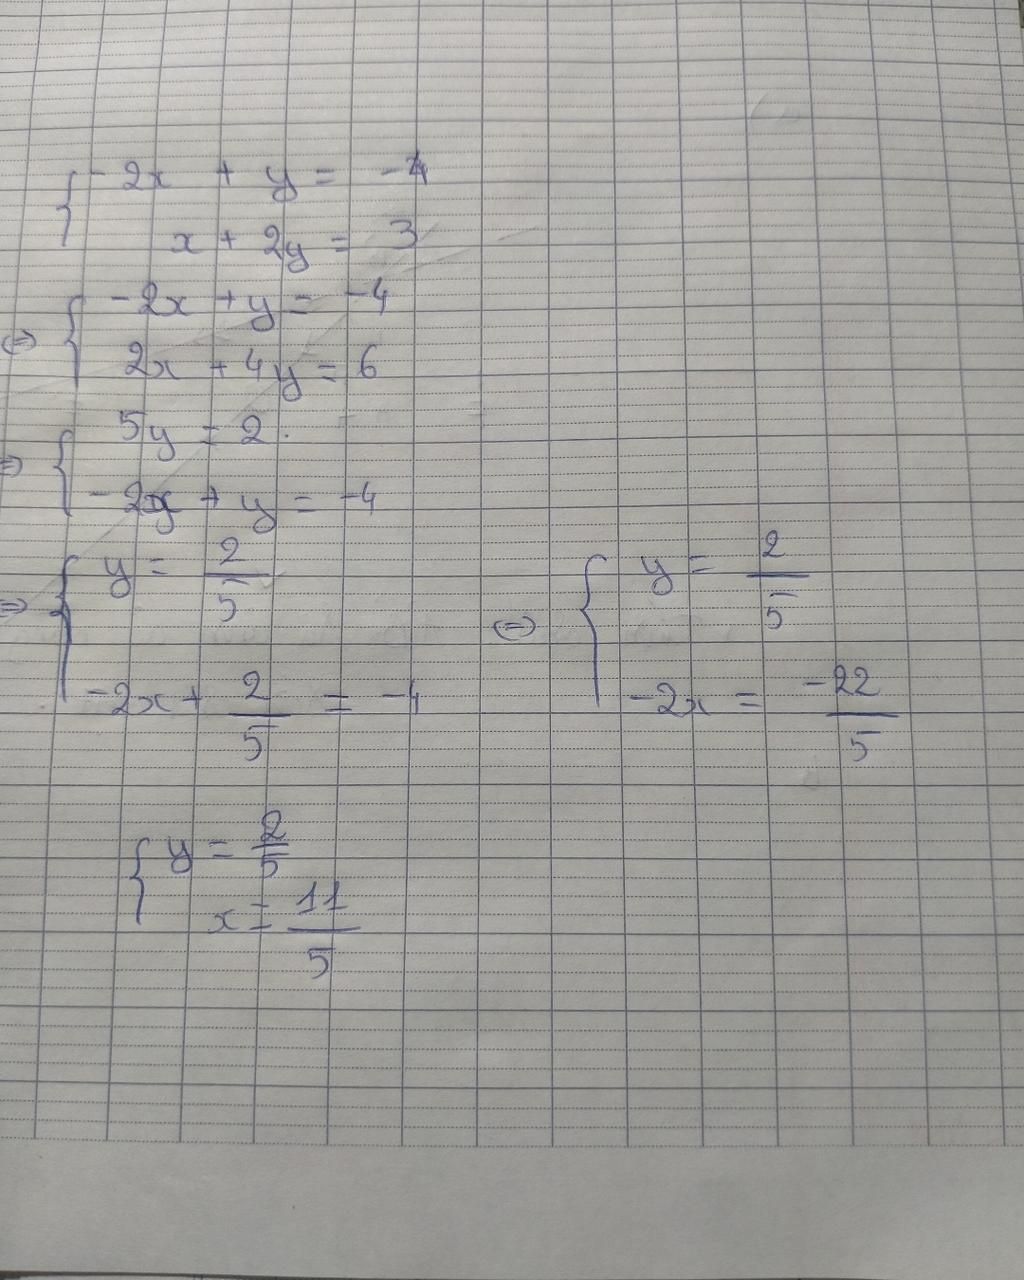 { -2x + y = -4
x + 2y = 3
⇔ { -2x + y = -4
2x + 4y = 6
⇒ { 5y = 2.
-2x + y = -4
⇒ { y = 2/5
-2x + 2/5 = -4
⇔ { y = 2/5
-2x = -22/5
{ y = 2/5
x = 11/5